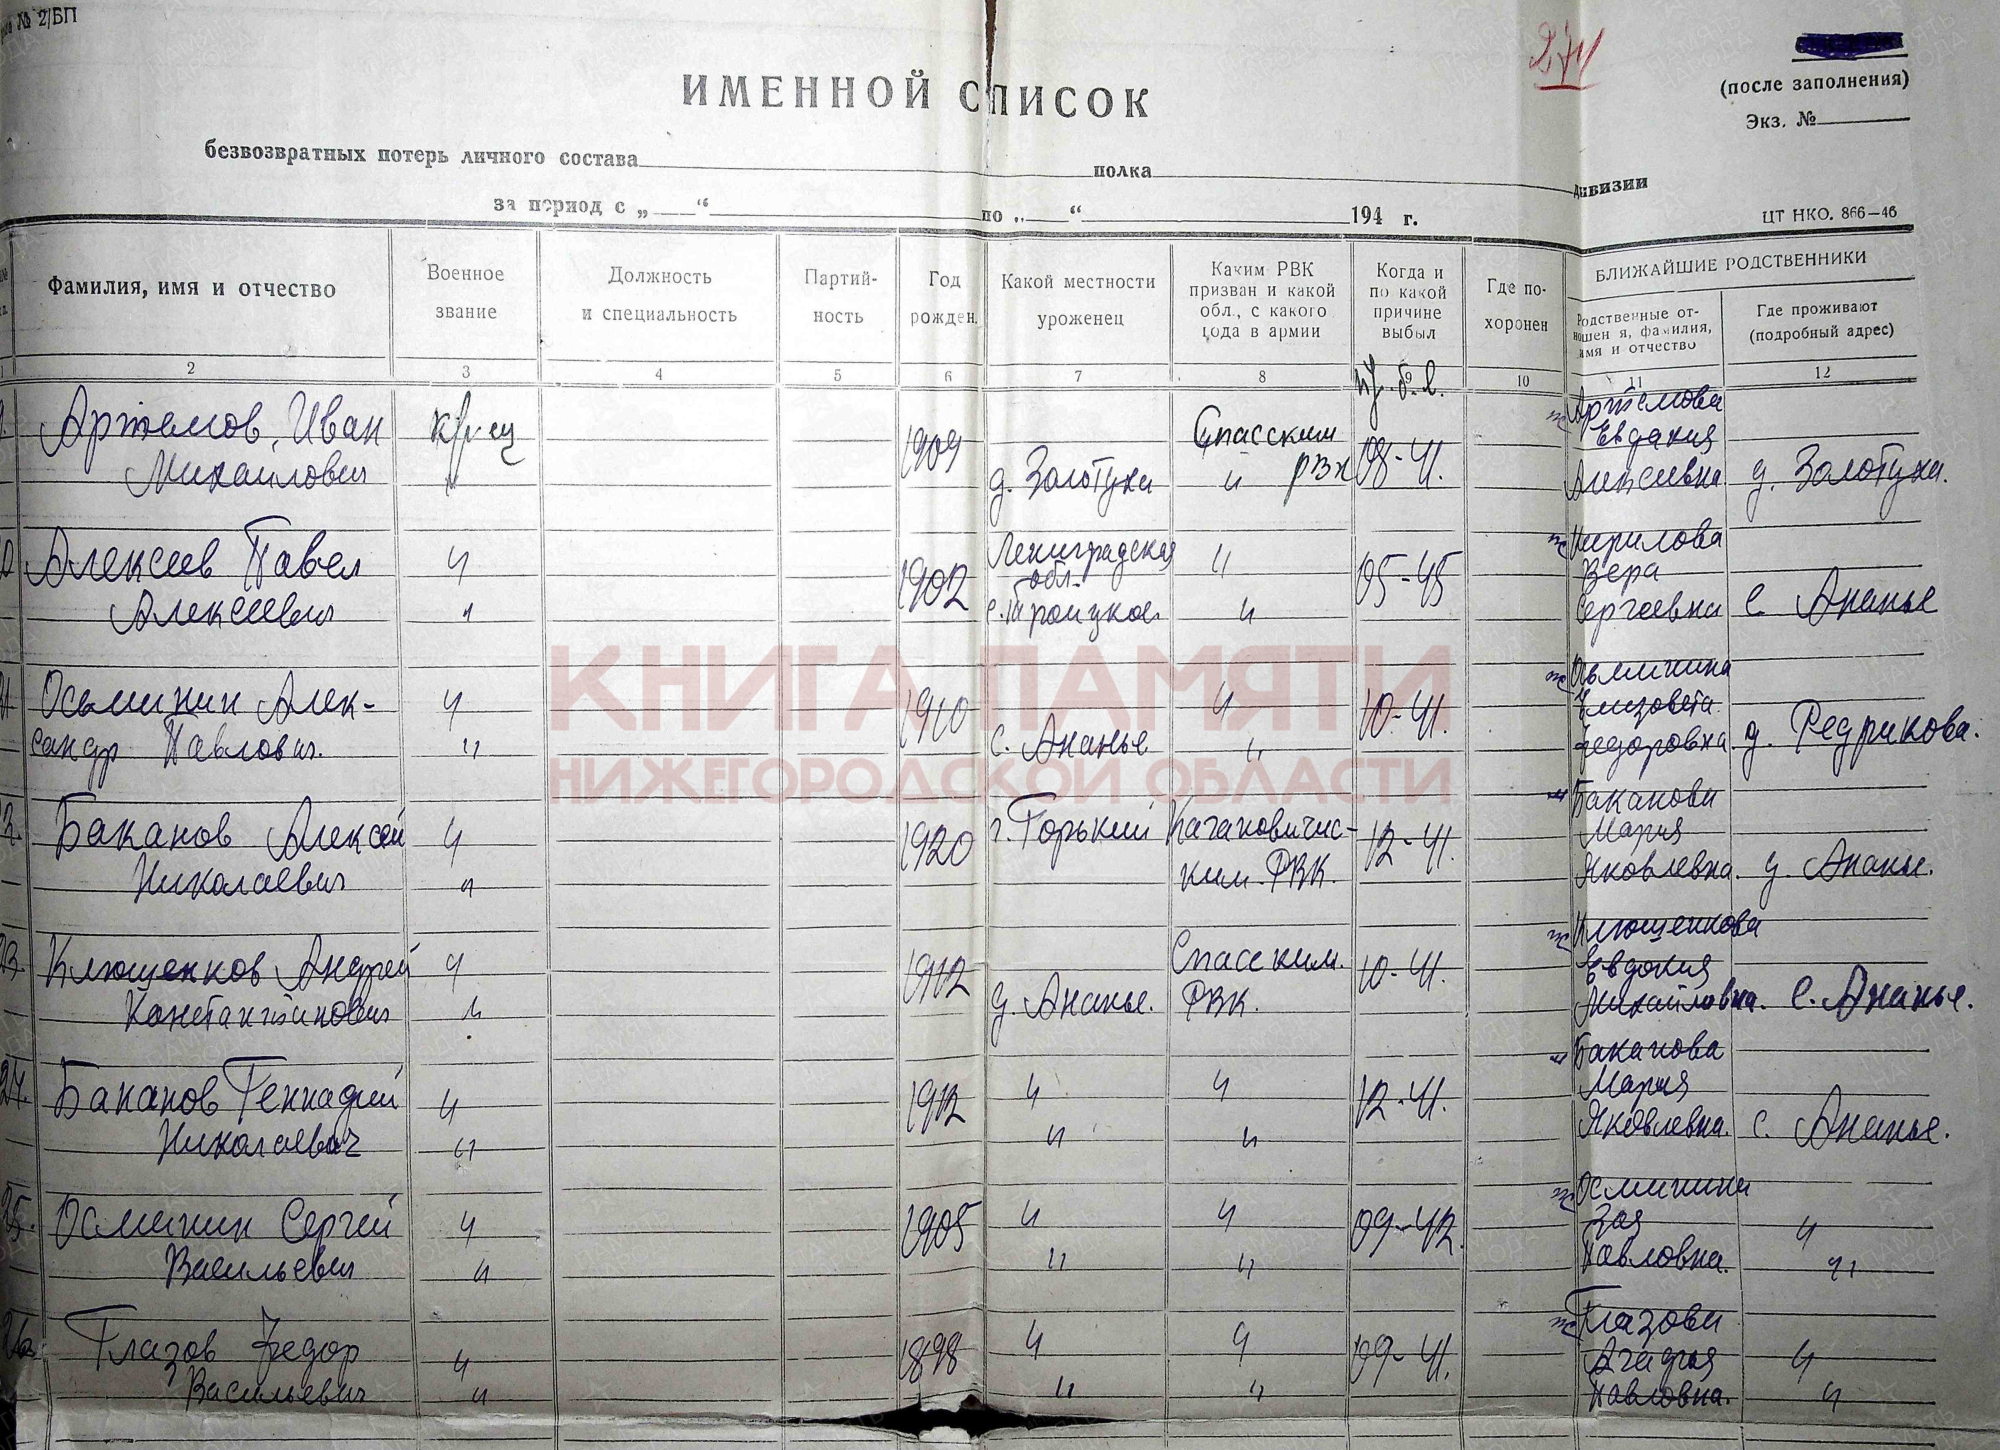 № 2/БП
271
(после заполнения)
Экз. №
ИМЕННОЙ СПИСОК
безвозвратных потерь личного состава полка дивизии
за период с „ “ по „ “ 194 г.
ЦТ НКО. 866—46
Фамилия, имя и отчество
Военное звание
Должность и специальность
Партий-ность
Год рожден.
Какой местности уроженец
Каким РВК призван и какой обл., с какого года в армии
Когда и по какой причине выбыл
Где по-хоронен
БЛИЖАЙШИЕ РОДСТВЕННИКИ
Родственные от-ношен я, фамилия, имя и отчество
Где проживают (подробный адрес)
2 3 4 5 6 7 8 9 10 11 12
Артемов, Иван Михайлович 1909 д. Золотуха Спасским РВК 08-41. Артемова Евдакия Алексеевна д. Золотуха.
Алексеев Павел Алексеевич " " 1902 Ленинградская обл. с. Троицкое " " 05-45 Кирилова Вера Сергеевна с. Ананье
Осьминин Алек-сандр Павлович. " " 1910 с. Ананье " " 10-41. Осьминина Елизовета Федоровна д. Редрикова.
Баканов Алексей Николаевич " " 1920 г. Горький Кагановичис-ким РВК. 12-41. Баканова Мария Яковлевна. д. Ананье.
23. Клюшенков Андрей Константинович " " 1912 д. Ананье. Спасским. РВК. 10-41. Клюшенкова Евдокия Михайловна. с. Ананье.
24. Баканов Геннадий Николаевич " " 1912 " " " " 12-41. Баканова Мария Яковлевна. с. Ананье.
25. Осминин Сергей Васильевич " " 1905 " " " " 09-42. Осминина Зоя Павловна. " "
26. Глазов Федор Васильевич " " 1898 " " " " 09-41. Глазова Агафья Павловна. " "
КНИГА ПАМЯТИ
НИЖЕГОРОДСКОЙ ОБЛАСТИ